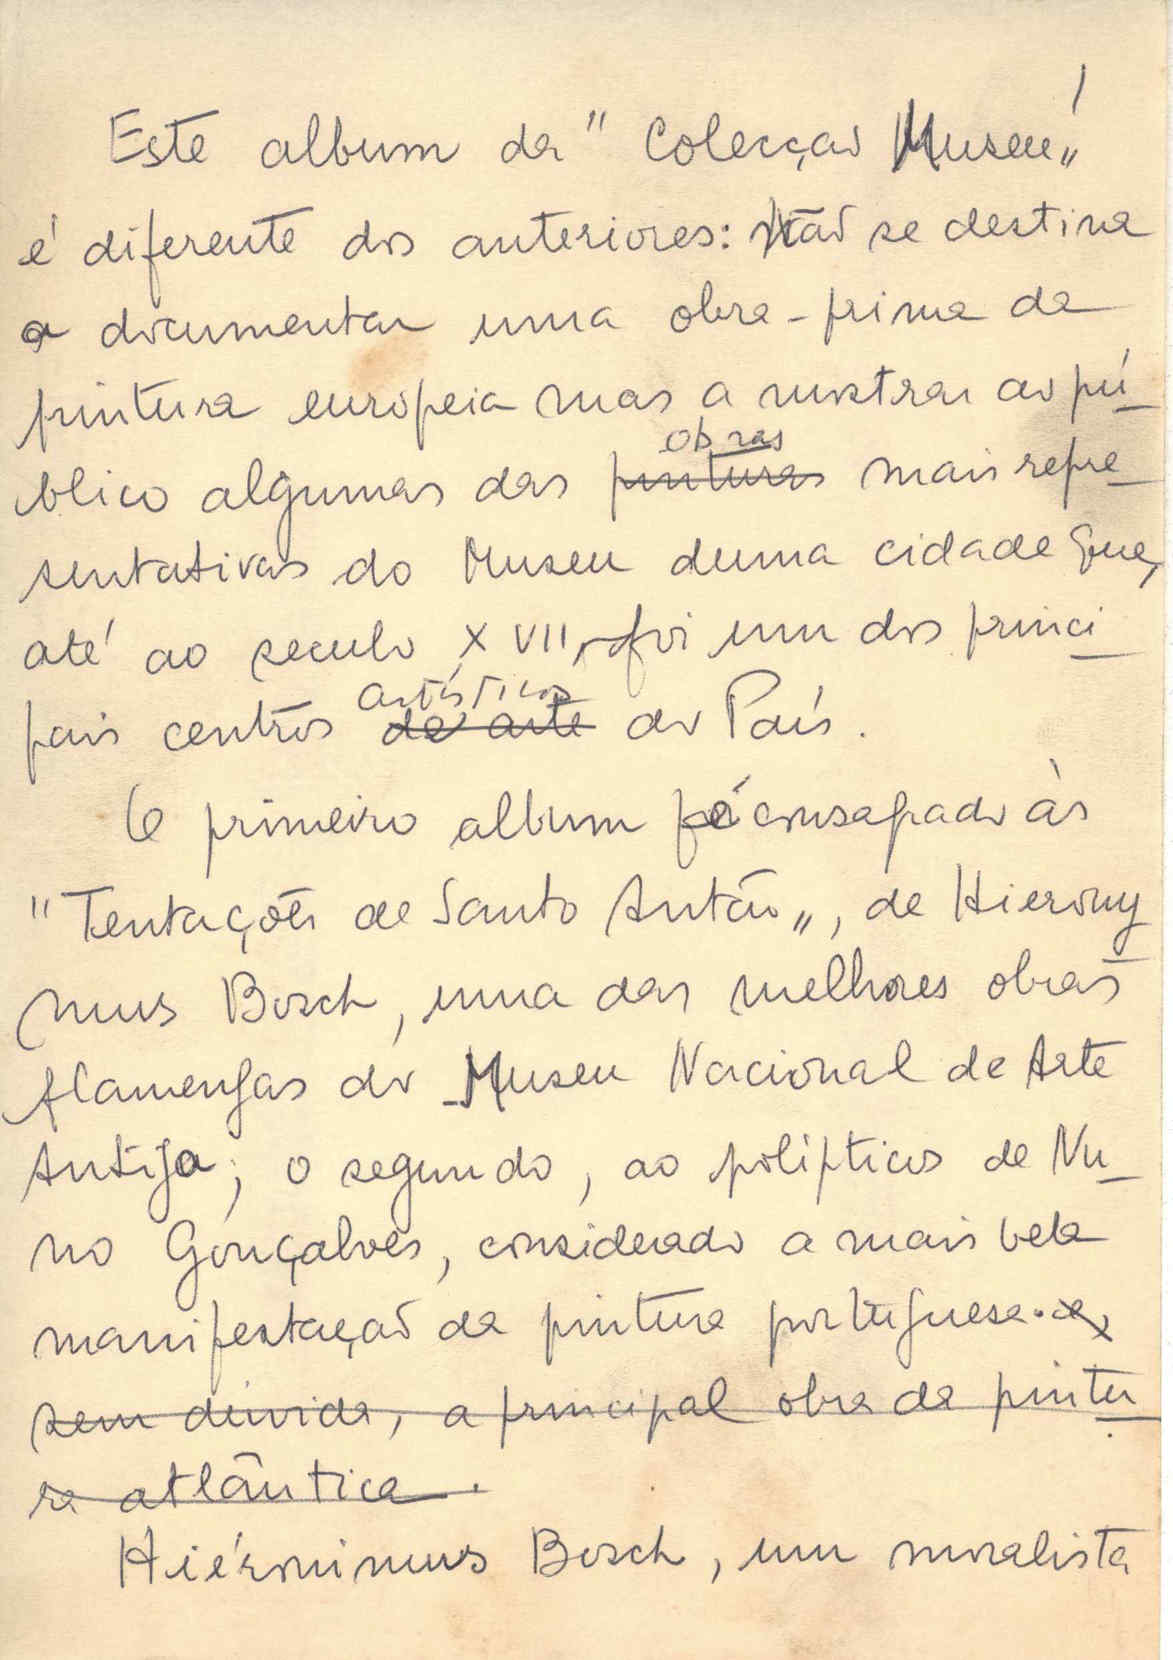 1
Este album da "Colecção Museu"
é diferente dos anteriores: não se destina
a documentar uma obra-prima da
pintura europeia mas a mostrar ao pú-
obras
blico algumas das pinturas mais repre-
sentativas do Museu duma cidade que,
até ao seculo XVII, foi um dos princi-
artísticos
pais centros de arte do País.
O primeiro album é consagrado às
"Tentações de Santo Antão", de Hierony-
mus Bosch, uma das melhores obras
flamengas do Museu Nacional de Arte
Antiga; o segundo, ao políptico de Nu-
no Gonçalves, considerado a mais bela
manifestação da pintura portuguesa. e,
sem dúvida, a principal obra da pintu-
ra atlântica.
Hiéronimus Bosch, um moralista